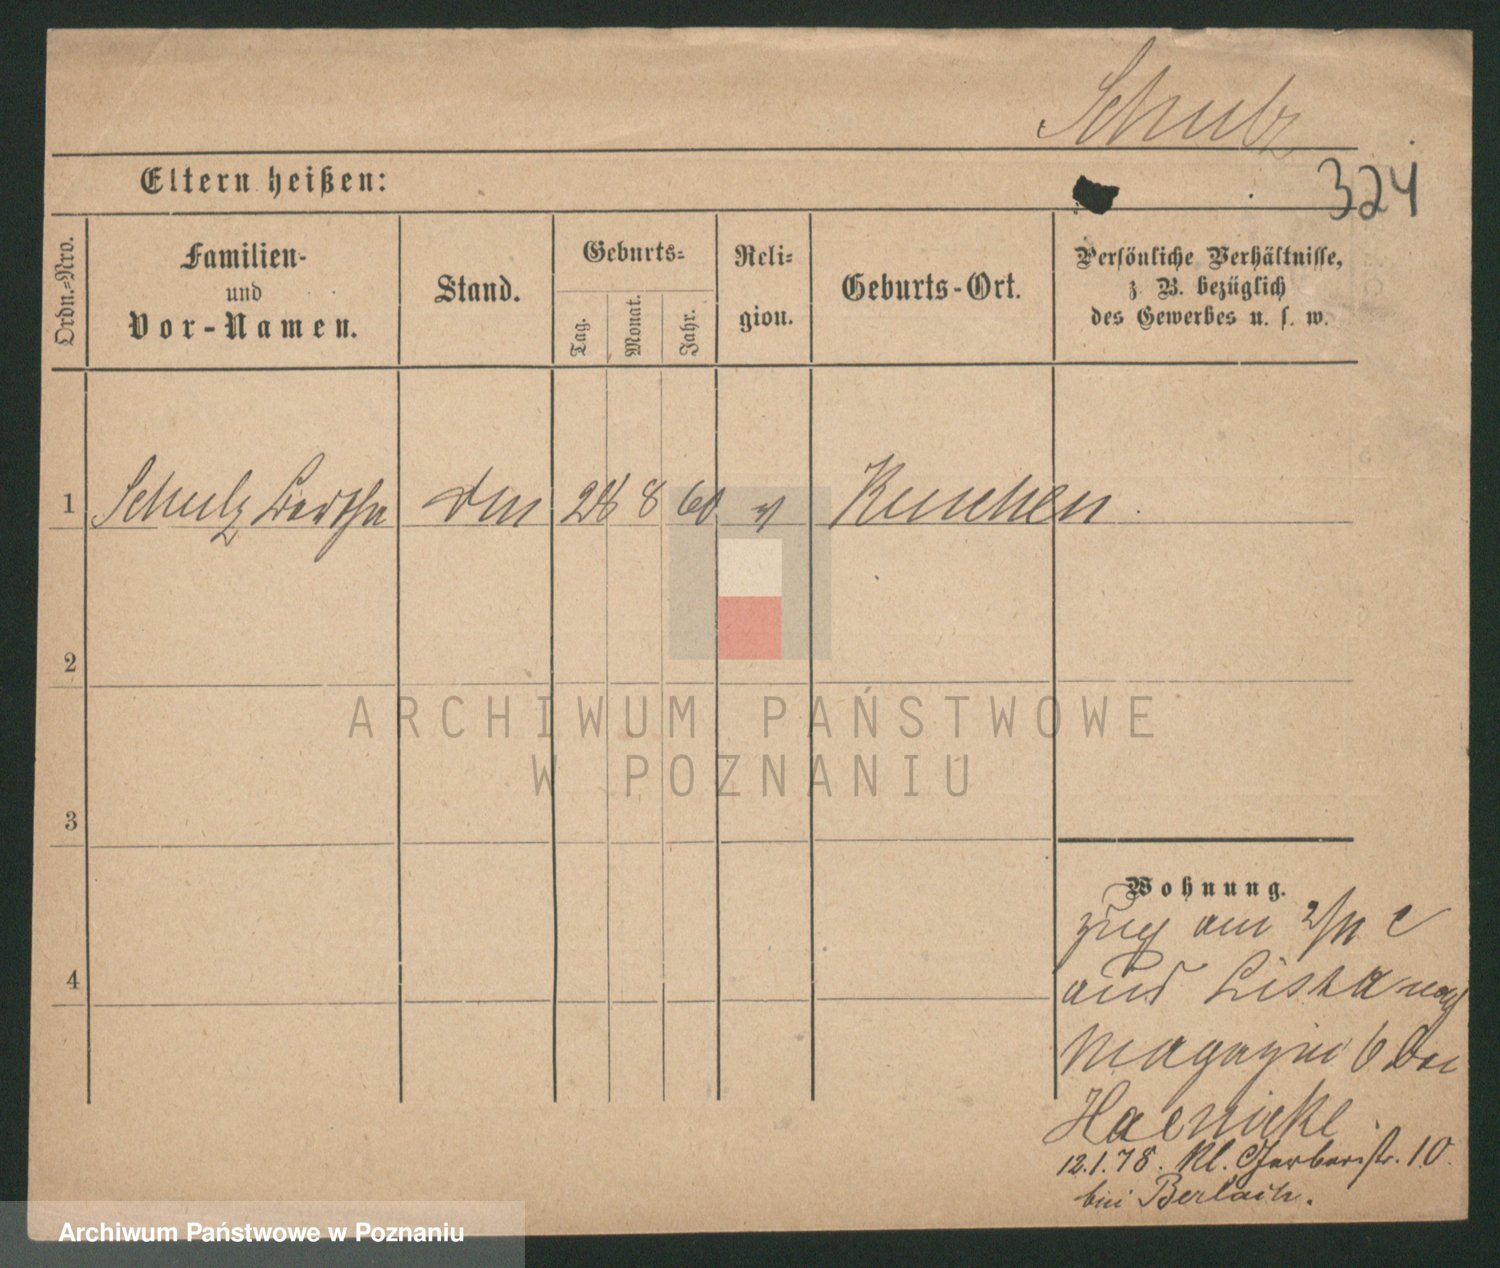 Schulz
324
Eltern heißen:
Ordn.-Nro.
Familien-
und
Vor-Namen.
Stand.
Geburts-
Tag.
Monat.
Jahr.
Reli-
gion.
Geburts-Ort.
Persönliche Verhältnisse,
z. B. bezüglich
des Gewerbes u. s. w.
1 Schulz Bertha 28 8 60 Kuschen
2
3
4
Wohnung.
zug am 2/11 c
aus Lissa nach
Magazin 6 bei
Haenickel
12.1.78. Kl. Gerberstr. 10.
bei Berlach.
ARCHIWUM PAŃSTWOWE
W POZNANIU
Archiwum Państwowe w Poznaniu